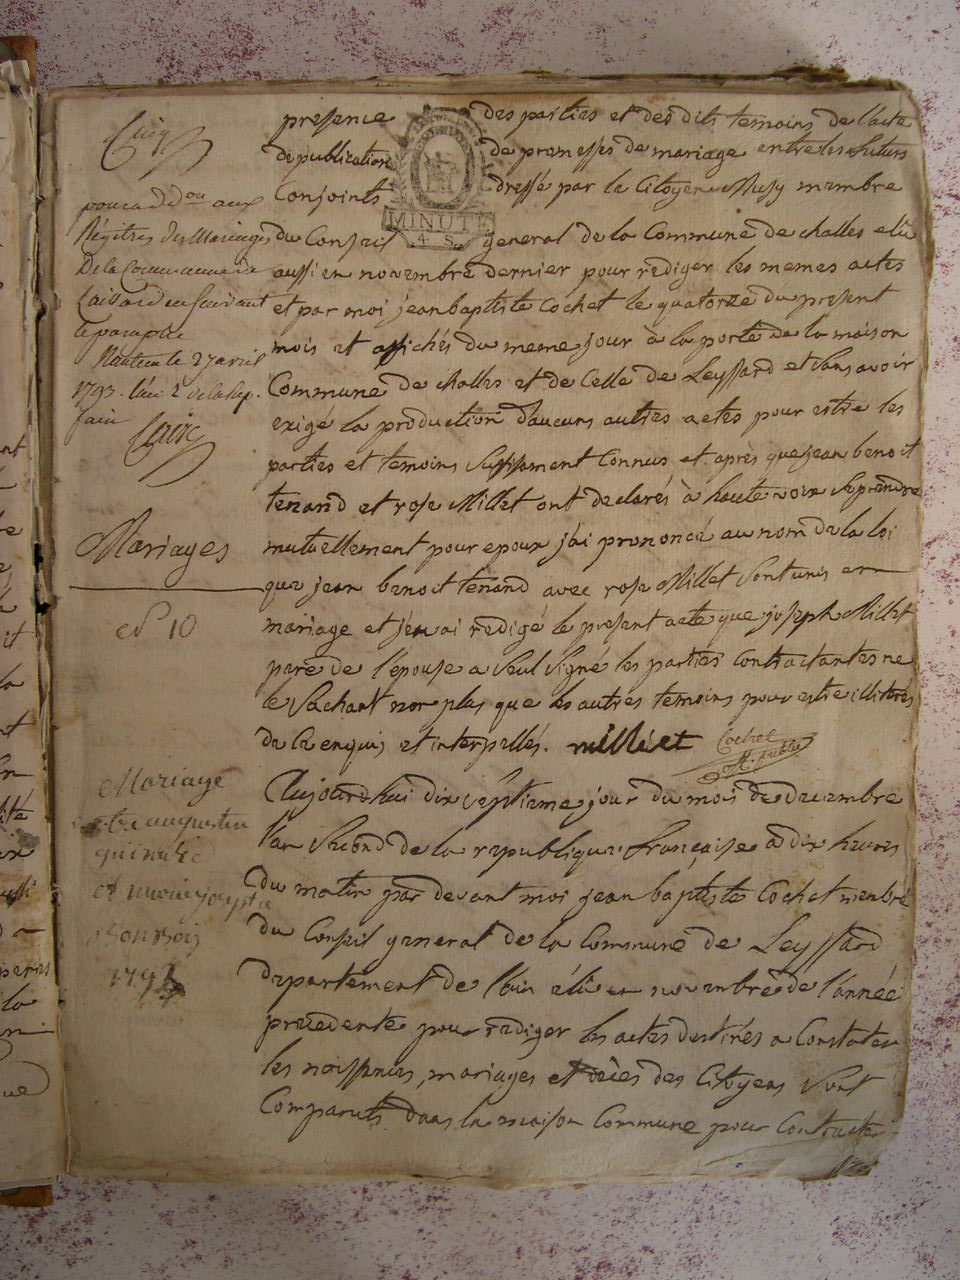 presence des parties et des dits temoins de l'acte
de publication de promesses de mariage entre les futurs
Conjoints dressé par le Citoyen Musy membre
MINUTE
4. S.
du Conseil general de la Commune de challes elu
aussi en novembre dernier pour rediger les memes actes
et par moi jean baptiste Cochet le quatorze du present
mois et affichés du meme jour à la porte de la maison
Commune de challes et de Celle de Leyssard et sans avoir
exigé la production d'aucuns autres actes pour estre les
parties et temoins suffisament Connus et après que jean benoit
tenand et rose Millet ont declarés à haute voix se prendre
mutuellement pour epoux j'ai prononcé au nom de la loi
que jean benoit tenand avec rose Millet sont unis en
mariage et j'en ai redigé le present acte que joseph Millet
pere de l'épouse a seul signé les parties Contractantes ne
le sachant non plus que les autres temoins pour estre illiterés
de Ce enquis et interpellés. milliet Cochet
off. public
Aujourd'hui dix septieme jour du mois de decembre
l'an second de la republique françaisse à dix heures
du matin par devant moi jean baptiste Cochet membre
du Conseil general de la Commune de Leyssard
departement de l'ain élu en novembre de l'année
precedente pour rediger les actes destinés a Constater
les naissances, mariages et décès des Citoyens sont
Comparuts dans la maison Commune pour Contracter
aux
Régitres des Mariages
De la Commune de
Laissard en suivant
le paraphe
Nantua le 27 avril
1793. l'an 2 de la Rep.
Mariages
N° 10
Mariage
entre augustin
et marie josephte